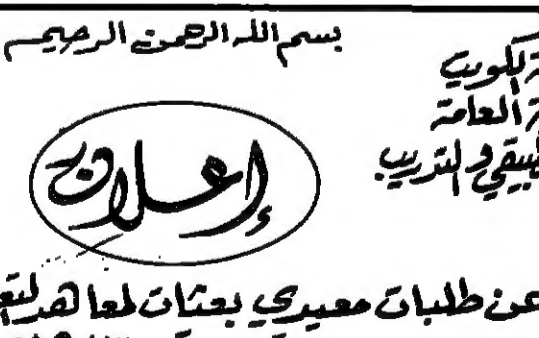 بسم الله الرحمن الرحيم
ة الكويت
ة العامة
طبيقي والتدريب
إعلان
عن طلبات معيدي بعثات لمعاهد التع